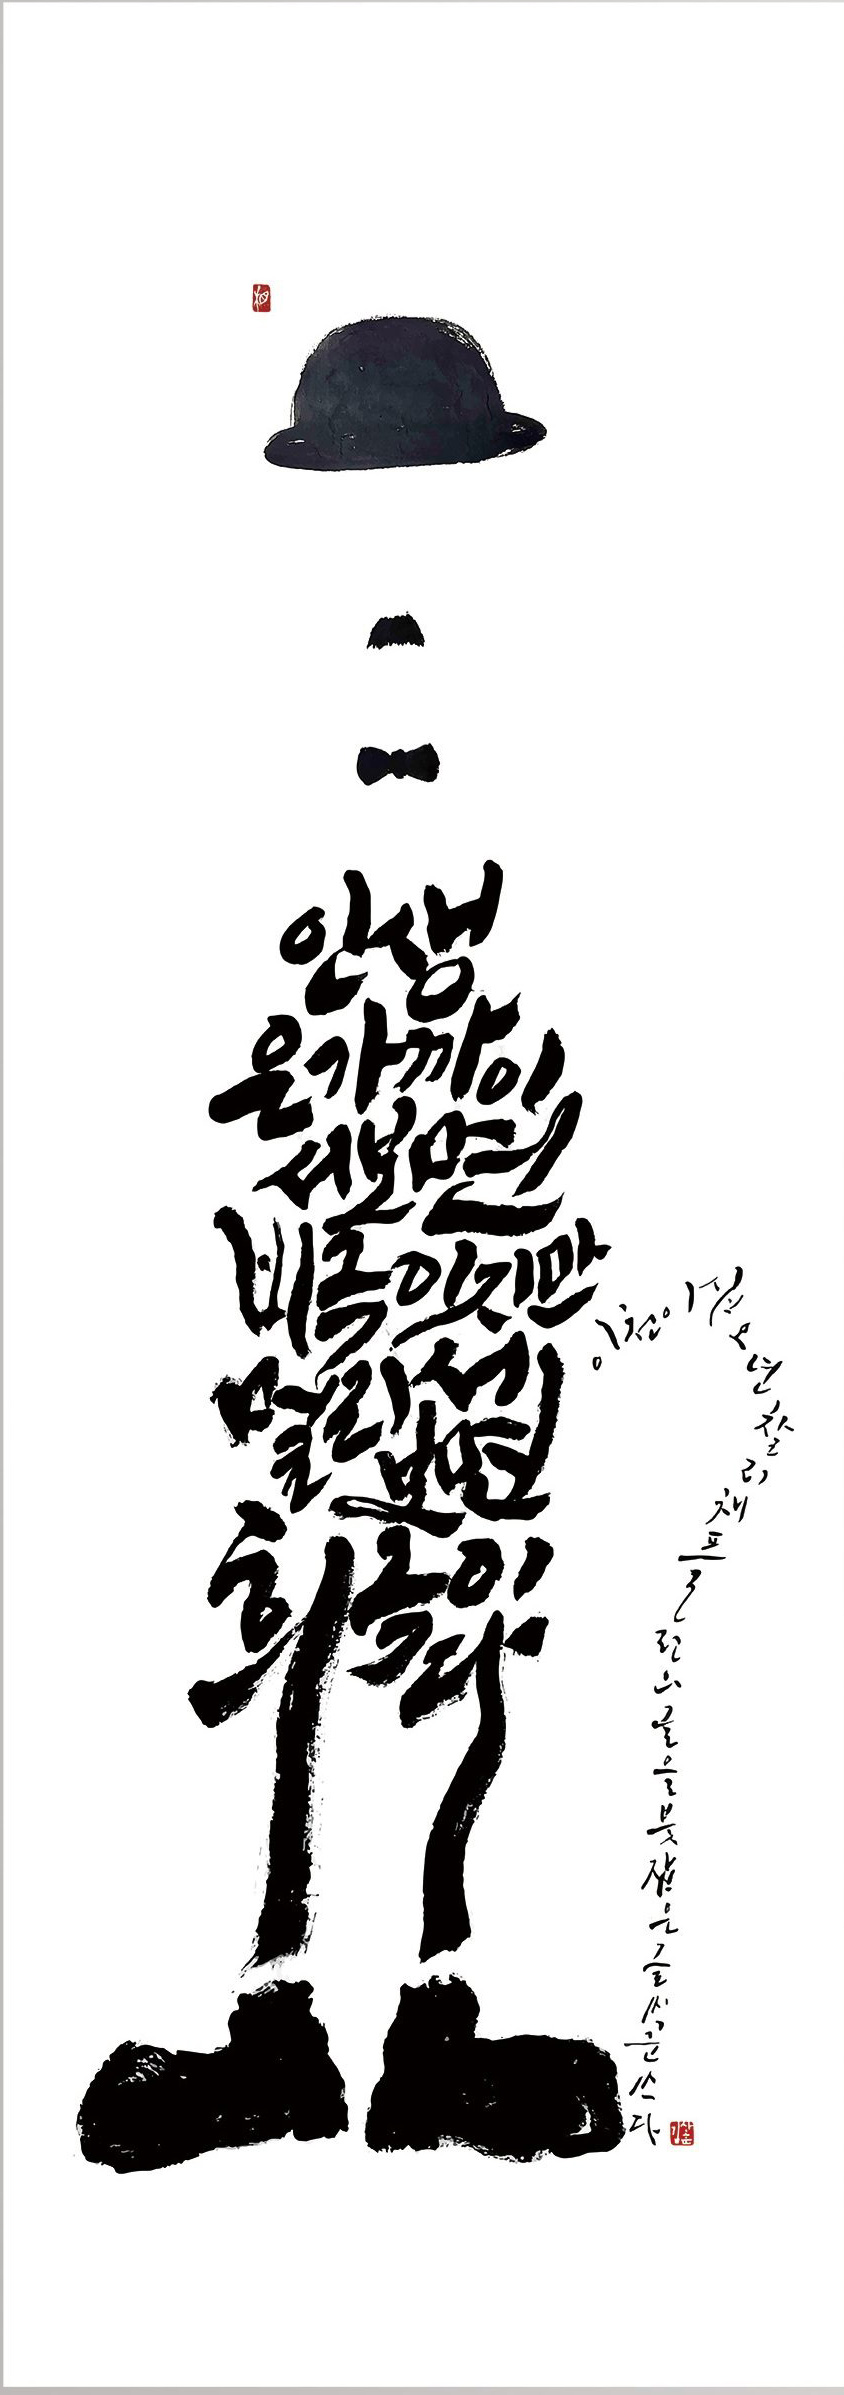 인생
은가까이
서보면
비극이지만
멀리서
보면
희극이
다
이천이십오년찰리채플린의글을붓잡은글씨꾼쓰다